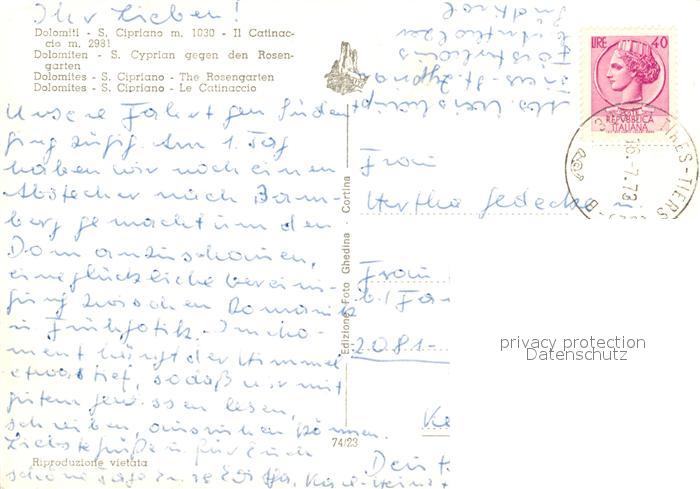 Ihr Lieben!
Dolomiti - S. Cipriano m. 1030 - Il Catinac-
cio m. 2981
Dolomiten - S. Cyprian gegen den Rosen-
garten
Dolomites - S. Cipriano - The Rosengarten
Dolomites - S. Cipriano - Le Catinaccio
Unsere Fahrt gen Süden
ging zügig. Am 1. Tag
haben wir noch einen
Abstecher nach Bam-
berg gemacht um den
Dom anzuschauen,
eine glückliche Vereini-
gung zwischen Romanik
u. Frühgotik. Im Mo-
ment hängt der Himmel
etwas tief, sodaß wir mit
gutem Gewissen lesen,
schreiben, ausruhen können.
Liebste Grüße u. für Euch
schöne Tage
Riproduzione vietata
Edizione Foto Ghedina - Cortina
74/23
LIRE 40
POSTE
REPVBBLICA
ITALIANA
TIRES-TIERS
16.7.73
Frau
Hertha Gedecke u.
Frau
2081-
privacy protection
Datenschutz